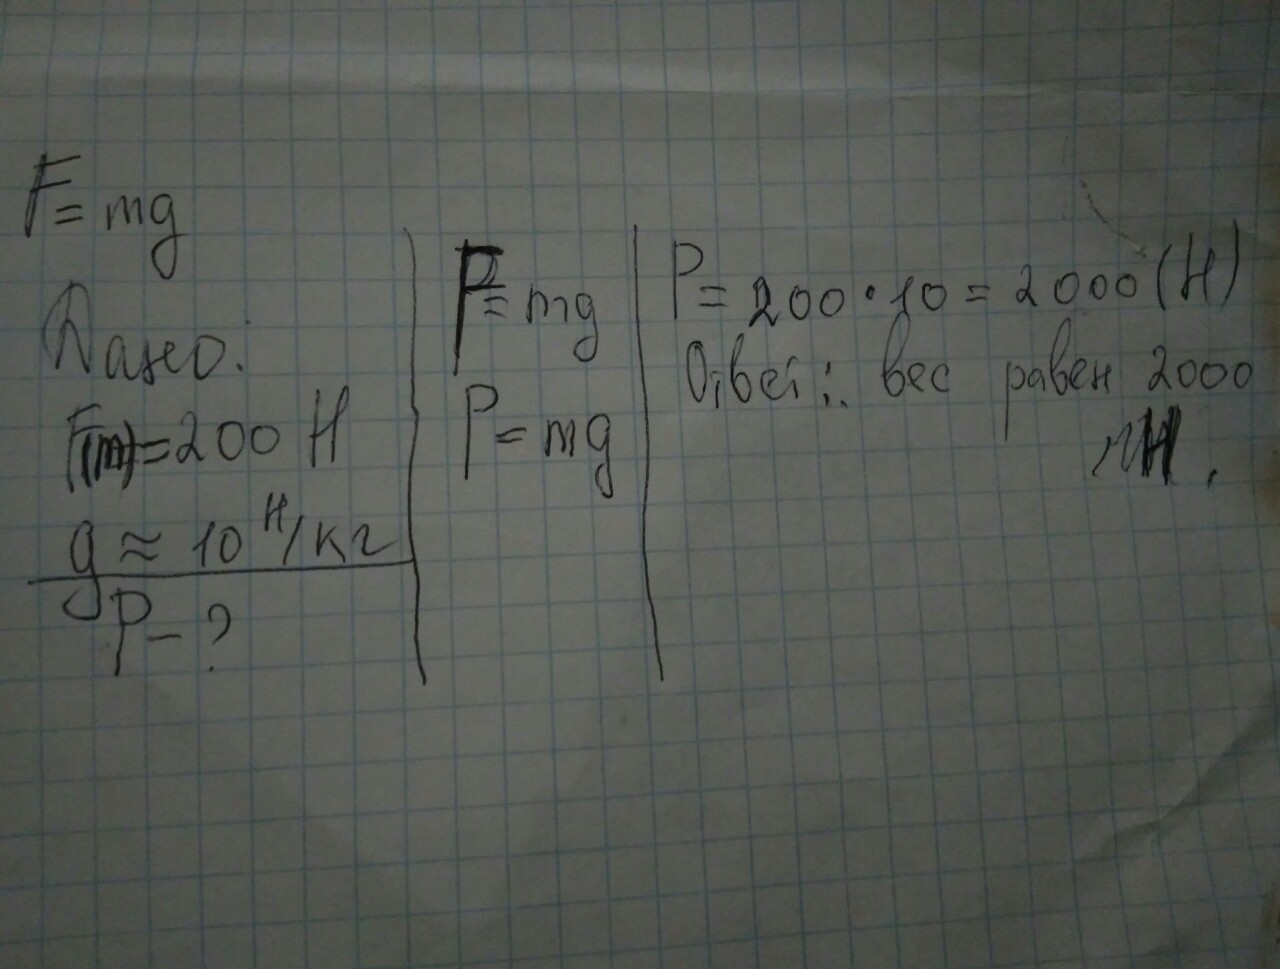 F = mg
Дано:
F(m) = 200 Н
g ≈ 10 Н/кг
P – ?
P = mg
P = mg
P = 200 · 10 = 2000 (Н)
Ответ: вес равен 2000
Н.